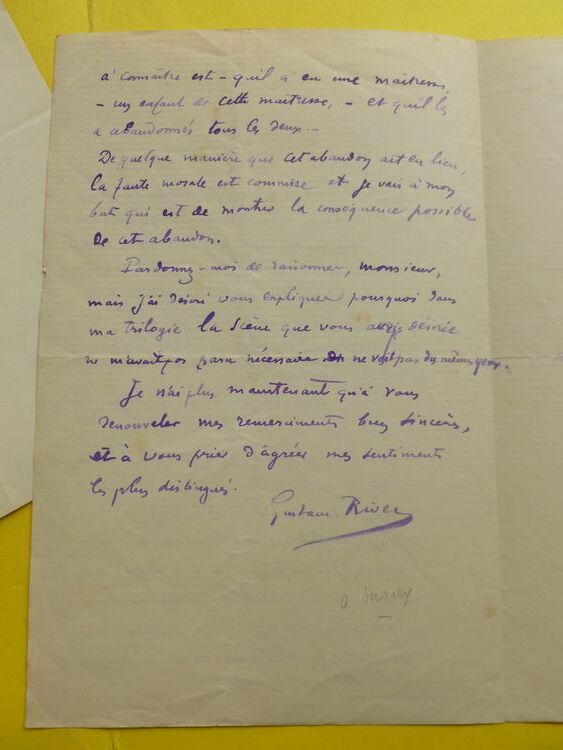 à connaître est - qu'il a eu une maîtresse,
- un enfant de cette maîtresse, - et qu'il les
a abandonnés tous les deux. -
De quelque manière que cet abandon ait eu lieu,
la faute morale est commise et je vais à mon
but qui est de montrer la conséquence possible
de cet abandon.
Pardonnez-moi de raisonner, monsieur,
mais j'ai désiré vous expliquer pourquoi dans
ma trilogie la scène que vous aviez désirée
ne m'avait pas paru nécessaire. On ne voit pas des mêmes yeux.
Je n'ai plus maintenant qu'à vous
renouveler mes remerciments bien sincères,
et à vous prier d'agréer mes sentiments
les plus distingués.
Gustave Rivet
a Sarcey